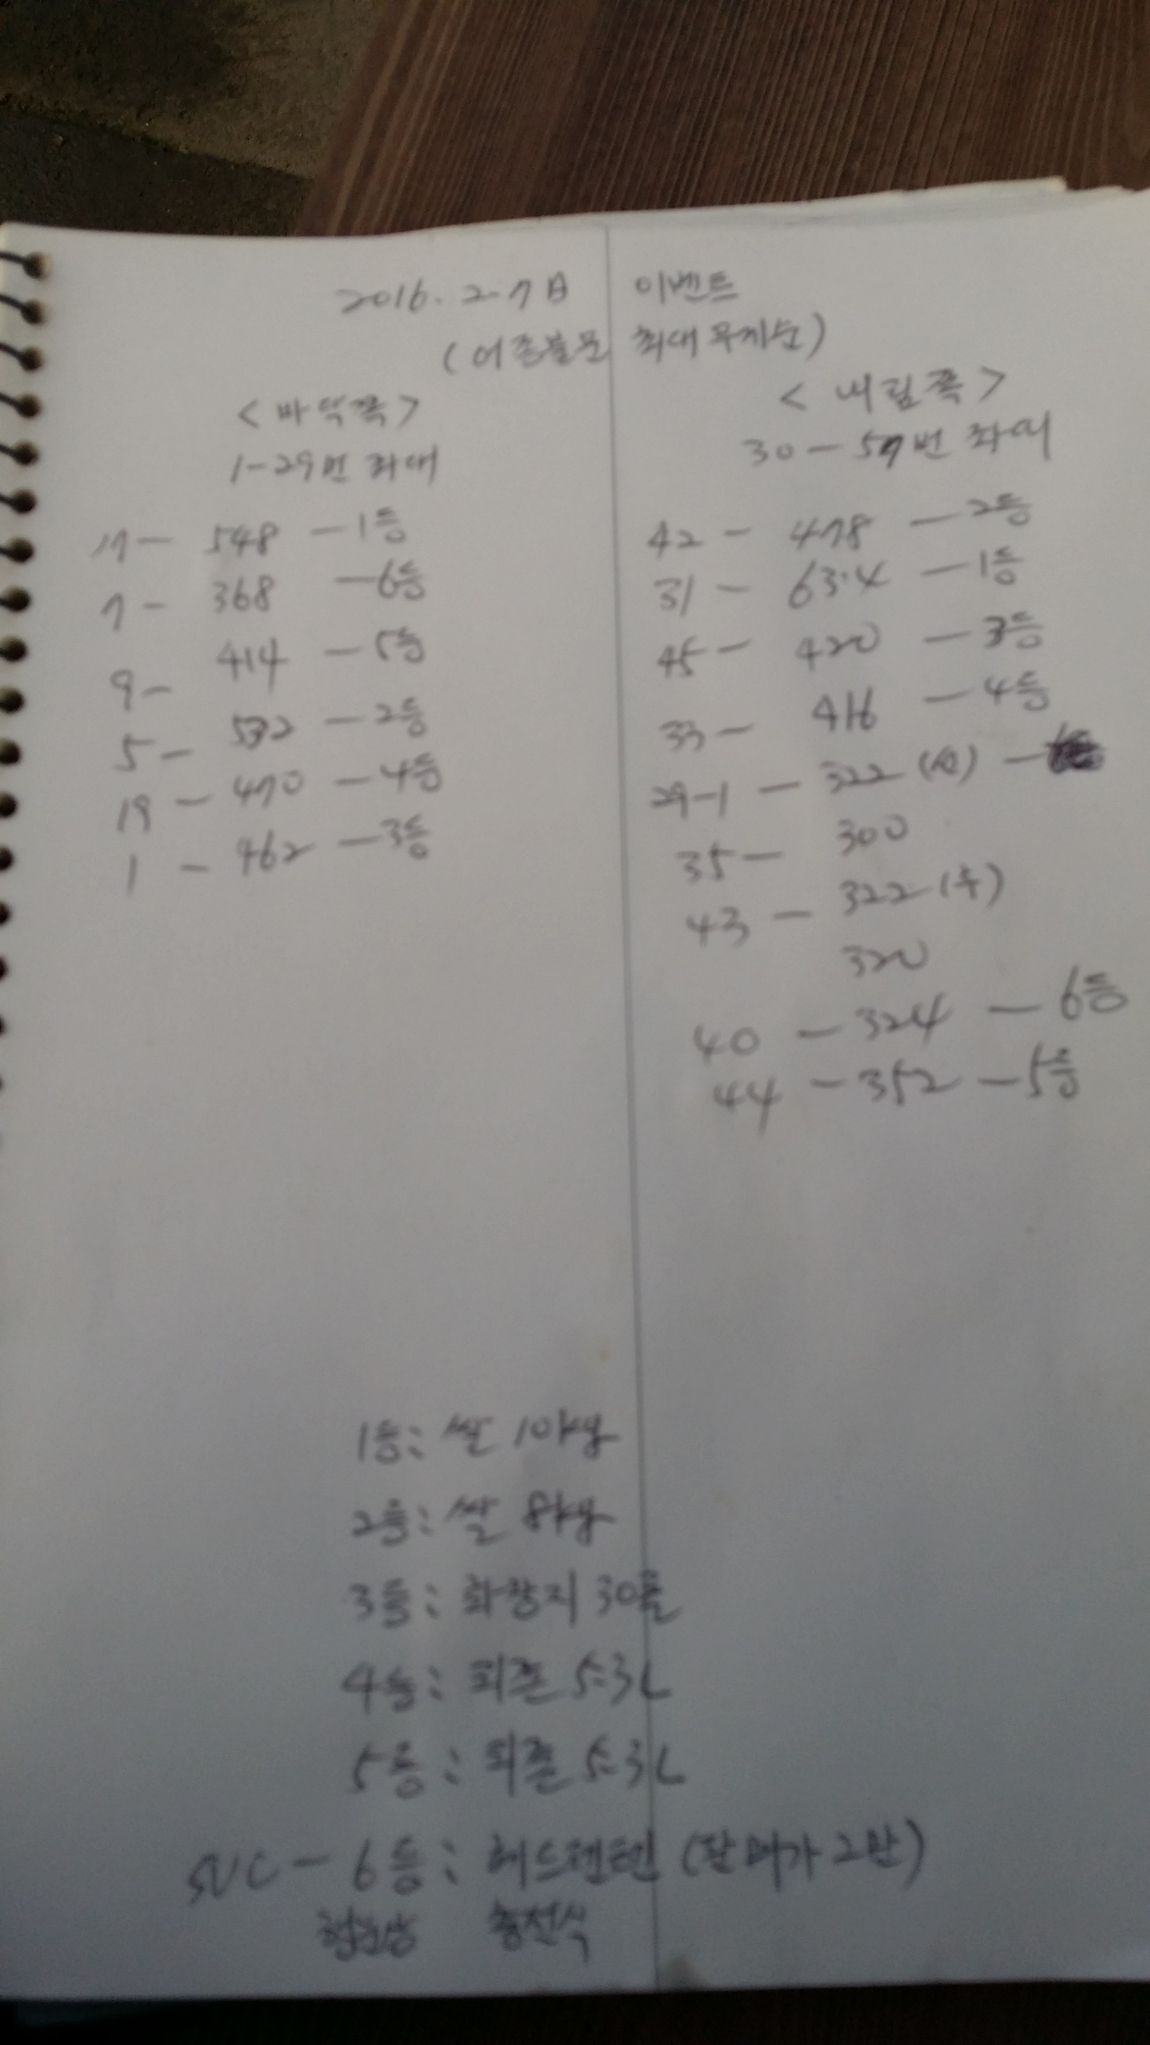 2016. 2. 7日 이벤트
(어종불문 최대무게순)
<바닥쪽>
1-29번 좌대
17 - 548 - 1등
7 - 368 - 6등
9 - 414 - 5등
5 - 532 - 2등
19 - 470 - 4등
1 - 462 - 3등
<내림쪽>
30 - 57번 좌대
42 - 478 - 2등
31 - 634 - 1등
45 - 420 - 3등
33 - 416 - 4등
29-1 - 322
35 - 300
43 - 322
320
40 - 324 - 6등
44 - 352 - 5등
1등: 쌀 10kg
2등: 쌀 8kg
3등: 화장지 30롤
4등: 피죤 5.3L
5등: 피죤 5.3L
SVC - 6등: 헤드랜턴 (판매가 2만)
충전식